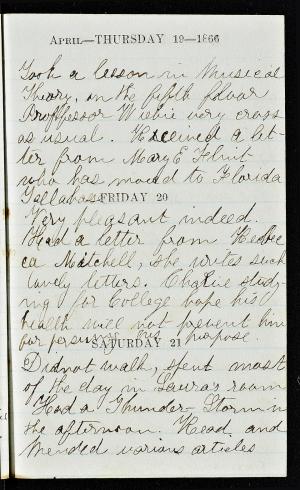 APRIL—THURSDAY 19—1866
Took a lesson in Musical
Theory, on the fifth floor
Proffessor Wiebie very cross
as usual. Received a let-
ter from Mary E Flint
who has moved to Florida
Tellahas
FRIDAY 20
Very pleasant indeed.
Had a letter from Rebec
ca Mitchell, she writes such
lovely letters. Charlie study-
ng for College hope his
health will not prevent him
for persuing his purpose.
SATURDAY 21
Did not walk, spent most
of the day in Laura's room
Had a Thunder-Storm in
the afternoon. Read and
mended various articles